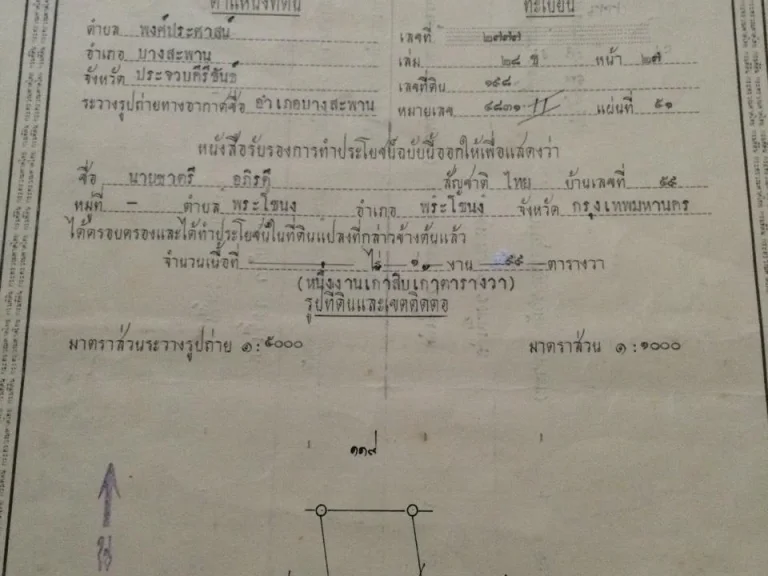 ตำแหน่งที่ดิน
ทะเบียน
ตำบล พงศ์ประศาสน์
อำเภอ บางสะพาน
จังหวัด ประจวบคีรีขันธ์
ระวางรูปถ่ายทางอากาศชื่อ อำเภอบางสะพาน
เลขที่ ๒๗๗๗
เล่ม ๒๘ ข หน้า ๒๗
เลขที่ดิน ๑๙๘
หมายเลข ๔๘๓๑ II แผ่นที่ ๕๑
หนังสือรับรองการทำประโยชน์ฉบับนี้ออกให้เพื่อแสดงว่า
ชื่อ นายชาตรี อภิรดี สัญชาติ ไทย บ้านเลขที่ ๕๕
หมู่ที่ - ตำบล พระโขนง อำเภอ พระโขนง จังหวัด กรุงเทพมหานคร
ได้ครอบครองและได้ทำประโยชน์ในที่ดินแปลงที่กล่าวข้างต้นแล้ว
จำนวนเนื้อที่ - ไร่ ๑ งาน ๙๙ ตารางวา
(หนึ่งงานเก้าสิบเก้าตารางวา)
รูปที่ดินและเขตติดต่อ
มาตราส่วนระวางรูปถ่าย ๑:๕๐๐๐
มาตราส่วน ๑:๑๐๐๐
๑๑๙